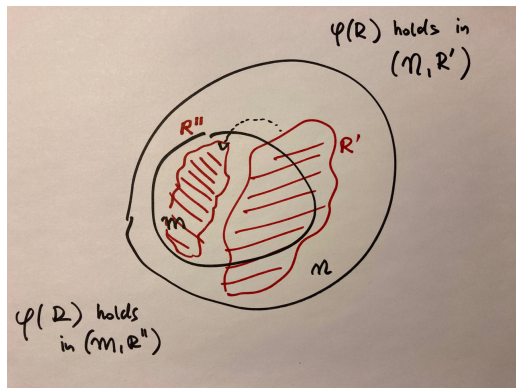 φ(R) holds in
(𝔑, R')
R''
R'
𝔐
𝔑
φ(R) holds
in (𝔐, R'')